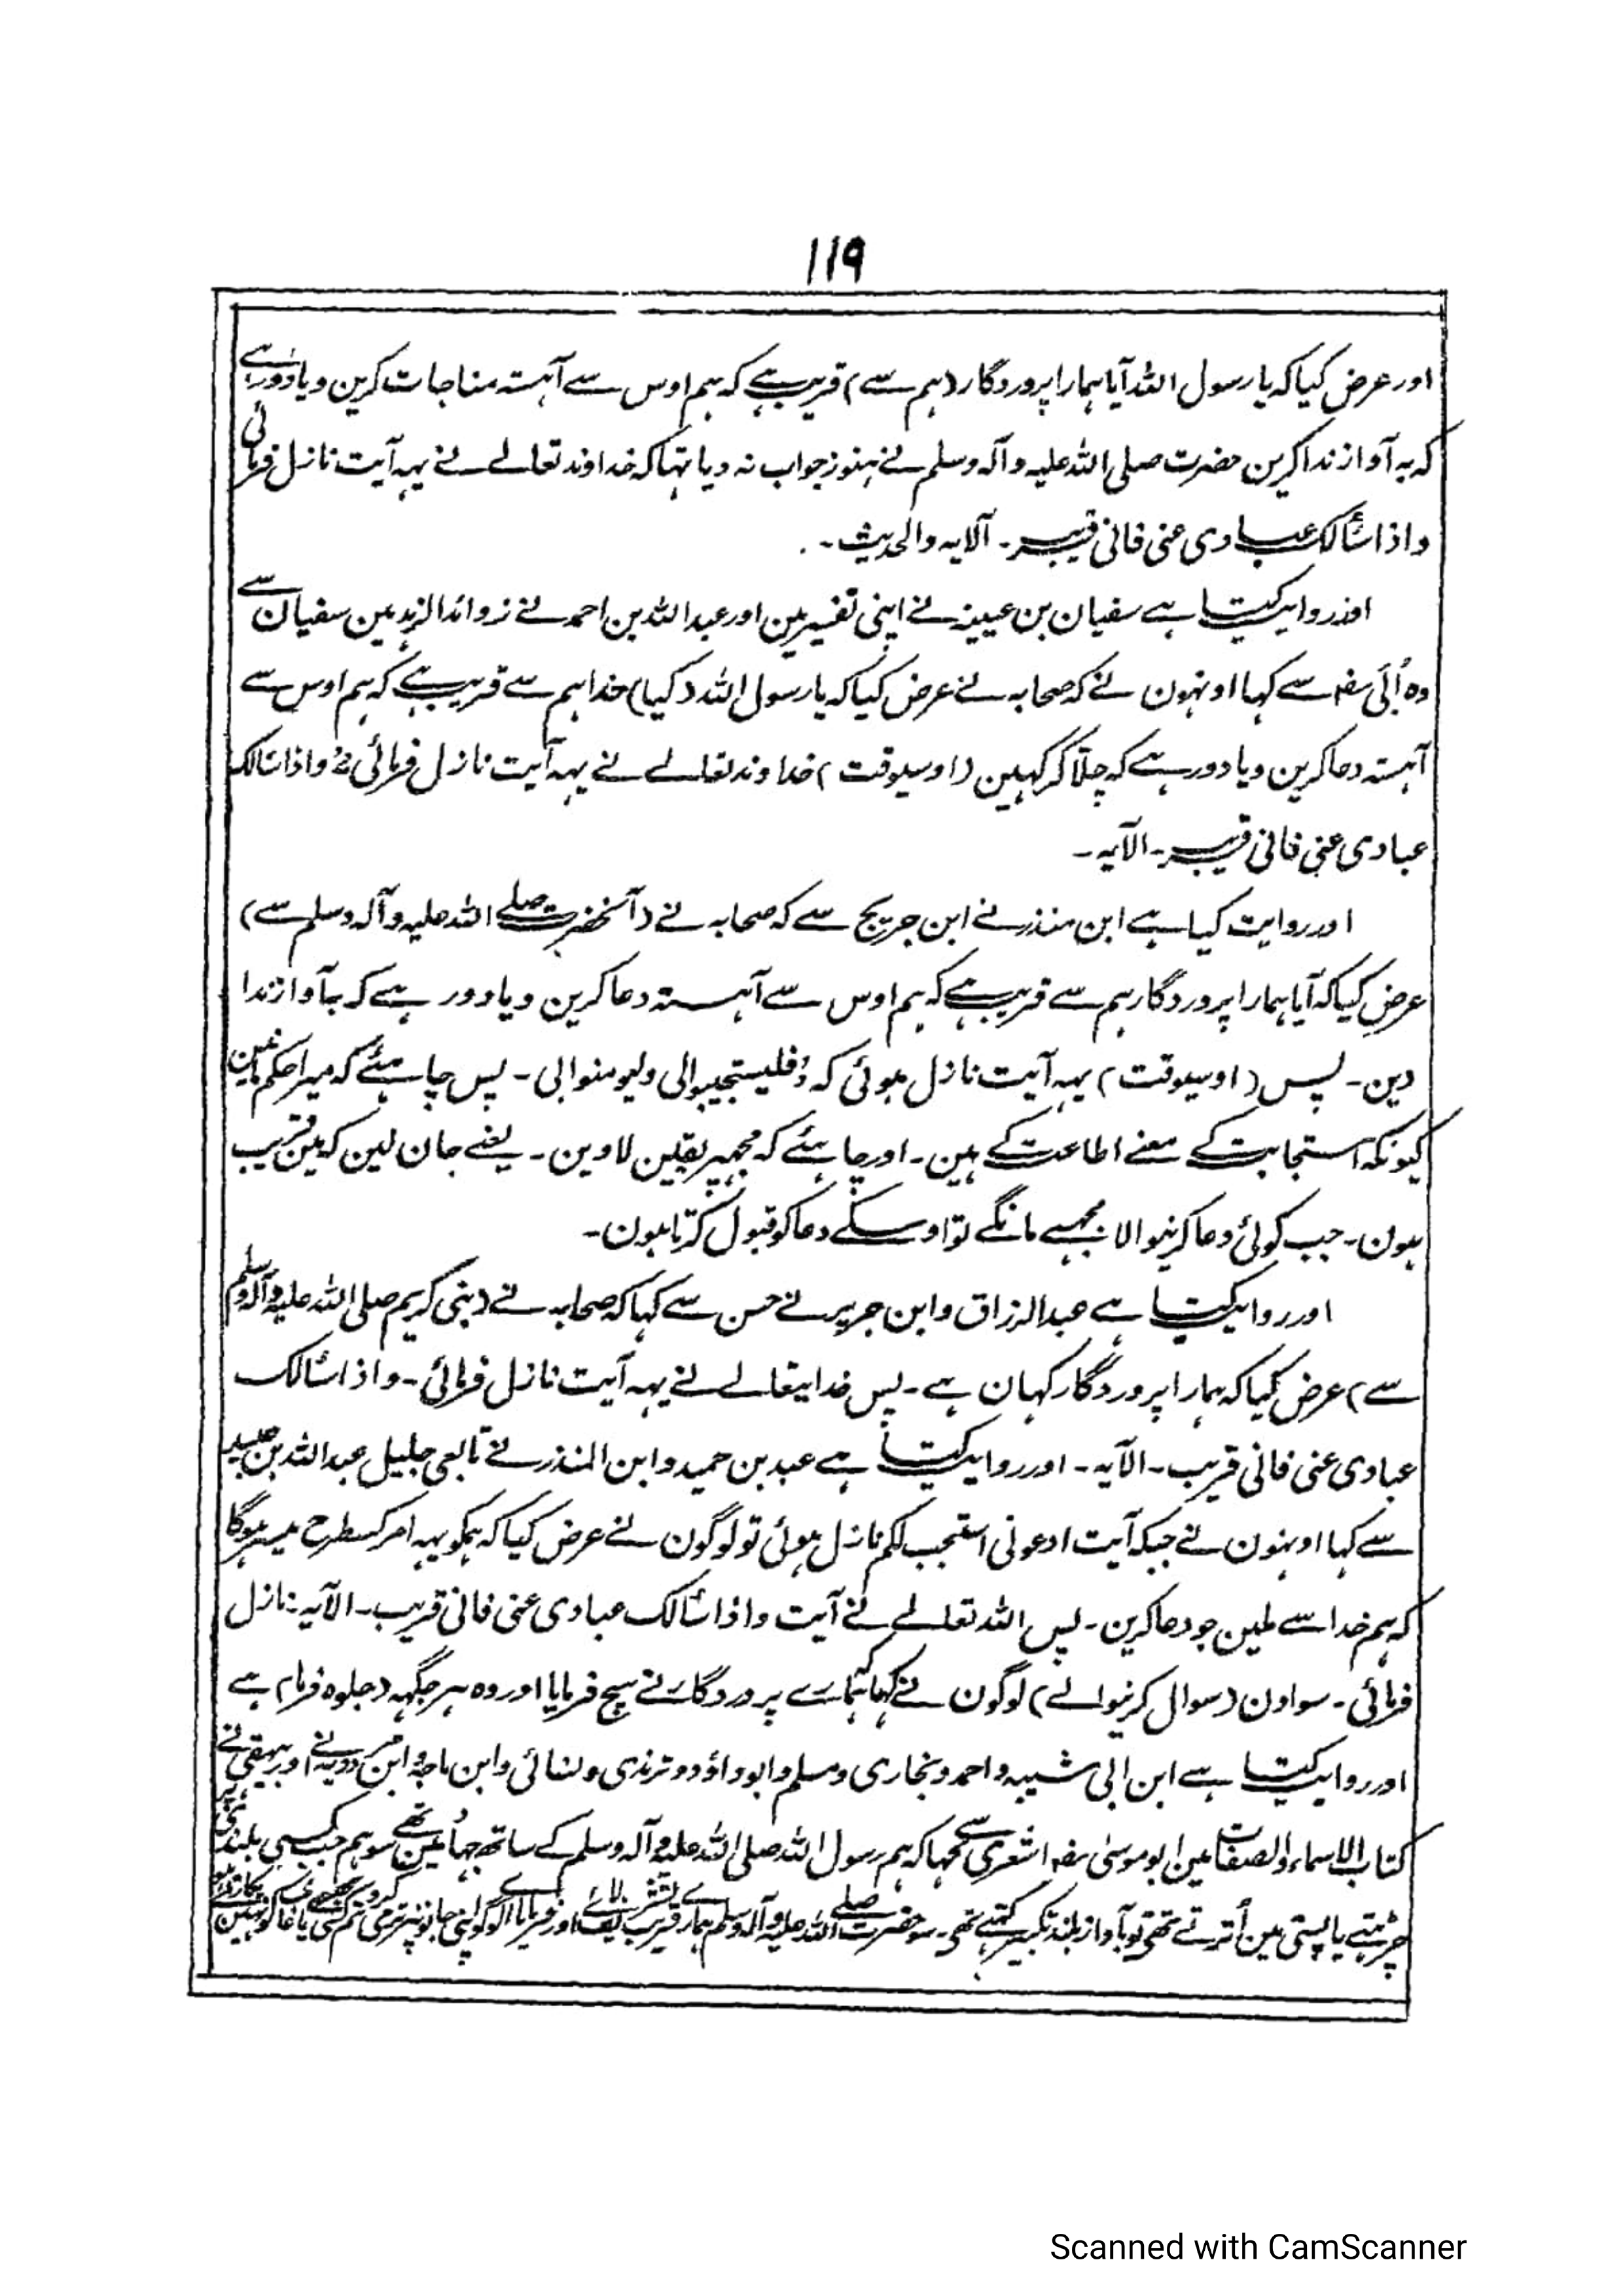 ۱۱۹
اور عرض کیا کہ یا رسول اللہ آیا ہمارا پروردگار (ہم سے) قریب ہے کہ ہم اوس سے آہستہ مناجات کرین ویا دور ہے
کہ بہ آواز ندا کرین حضرت صلی اللہ علیہ وآلہ وسلم نے ہنوز جواب نہ دیا تہا کہ خداوند تعالے نے یہہ آیت نازل فرمائی
واذا سألک عبادی عنی فانی قریب۔ آلایہ والحدیث۔
اور روایت کیا ہے سفیان بن عیینہ نے اپنی تفسیر مین اور عبد اللہ بن احمد نے زوائد الزہد مین سفیان سے
وہ اُبَی رضہ سے کہا اونہون نے کہ صحابہ نے عرض کیا کہ یا رسول اللہ (کیا) خدا ہم سے قریب ہے کہ ہم اوس سے
آہستہ دعا کرین ویا دور ہے کہ چلّا کر کہین (اوسیوقت) خداوند تعالے نے یہہ آیت نازل فرمائی واذا سألک
عبادی عنی فانی قریب۔ الآیہ۔
اور روایت کیا ہے ابن منذر نے ابن جریج سے کہ صحابہ نے (آنحضرت صلے اللہ علیہ وآلہ وسلم سے)
عرض کیا کہ آیا ہمارا پروردگار ہم سے قریب ہے کہ ہم اوس سے آہستہ دعا کرین ویا دور ہے کہ بآواز ندا
دین۔ پس (اوسیوقت) یہہ آیت نازل ہوئی کہ فلیستجیبوالی ولیومنوابی۔ پس چاہئے کہ میرا حکم مانین
کیونکہ استجابت کے معنے اطاعت کے ہین۔ اور چاہئے کہ مجہپر یقین لاوین۔ یعنے جان لین کہ مین قریب
ہون۔ جب کوئی دعا کرنیوالا مجہسے مانگے تو اوسکے دعا کو قبول کرتا ہون۔
اور روایت کیا ہے عبد الرزاق وابن جریر نے حسن سے کہا کہ صحابہ نے (نبی کریم صلی اللہ علیہ وآلہ وسلم
سے) عرض کیا کہ ہمارا پروردگار کہان ہے۔ پس خدایتعالے نے یہہ آیت نازل فرمائی۔ واذا سألک
عبادی عنی فانی قریب۔ الآیہ۔ اور روایت کیا ہے عبد بن حمید وابن المنذر نے تابعی جلیل عبد اللہ بن عبید
سے کہا اونہون نے جبکہ آیت ادعونی استجب لکم نازل ہوئی تو لوگون نے عرض کیا کہ ہمکو یہہ امر کسطرح میسر ہوگا
کہ ہم خدا سے ملین جو دعا کرین۔ پس اللہ تعالے نے آیت واذا سألک عبادی عنی فانی قریب۔ الآیہ نازل
فرمائی۔ سو اون (سوال کرنیوالے) لوگون نے کہا کہ ہمارے پروردگار نے سچ فرمایا اور وہ ہر جگہہ (جلوہ فرما) ہے
اور روایت کیا ہے ابن ابی شیبہ واحمد وبخاری ومسلم وابو داؤد وترمذی ونسائی وابن ماجہ وابن مردویہ نے اور بیہقی نے
کتاب الاسماء والصفات مین ابو موسٰی رضہ اشعری سے کہا کہ ہم رسول اللہ صلی اللہ علیہ وآلہ وسلم کے ساتھ جہاد مین تھے سو ہم جب کسی بلندی پر
چڑہتے یا پستی مین اُترتے تھے تو بآواز بلند تکبیر کہتے تھے۔ سو حضرت صلے اللہ علیہ وآلہ وسلم ہمارے قریب تشریف لائے اور فرمایا اے لوگو اپنی جانو پر نرمی کرو
Scanned with CamScanner